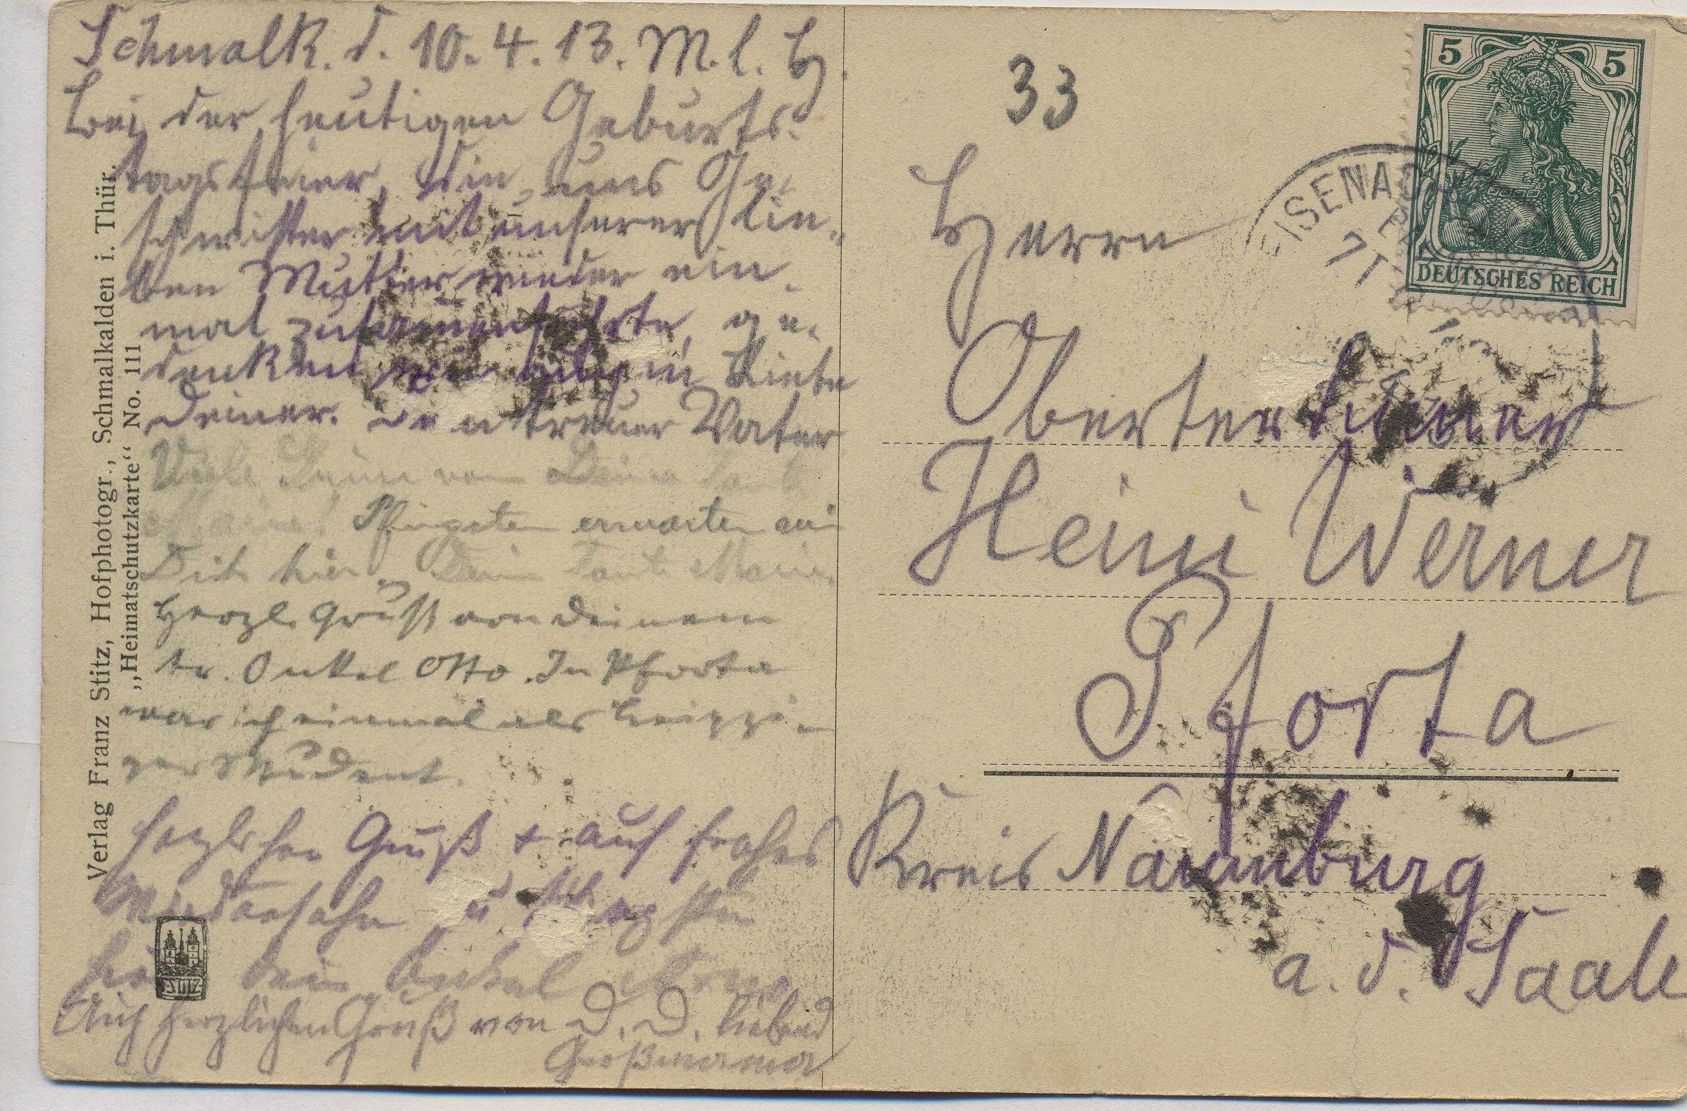 Schmalk. d. 10.4.13. M. l. H.
Bei der heutigen Geburts-
tagsfeier, die uns Ge-
schwister mit unserer lie-
ben Mutter wieder ein-
mal zusammenführte, ge-
denken wir auch in Liebe
Deiner. Dein treuer Vater
Viele Grüße von Deiner Tante
Marie! Pfingsten erwarten wir
Dich hier! Deine Tante Marie.
Herzl. Gruß von Deinem
tr. Onkel Otto. In Pforta
war ich einmal als Leipzi-
ger Student.
Herzlichen Gruß + auf frohes
Wiedersehn Pfingsten
hier Dein Onkel
Auch herzlichen Gruß von D. D. liebend
Großmama
Verlag Franz Stitz, Hofphotogr., Schmalkalden i. Thür.
„Heimatschutzkarte“ No. 111
STITZ
33
5 5
DEUTSCHES REICH
EISENACH
Herrn
Obertertianer
Heini Werner
Pforta
Kreis Naumburg
a. d. Saale